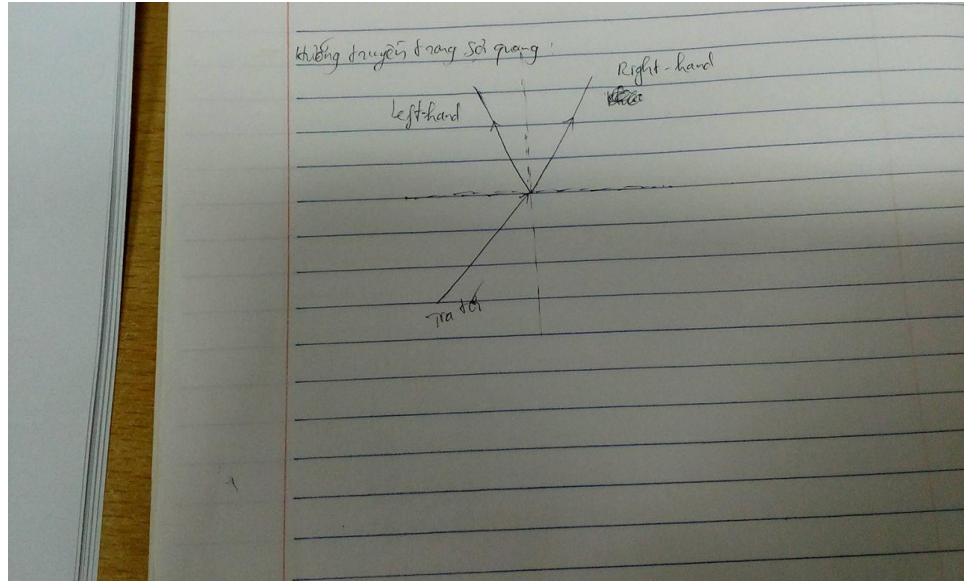 không truyền trong sợi quang :
Right-hand
Left-hand
Tia tới